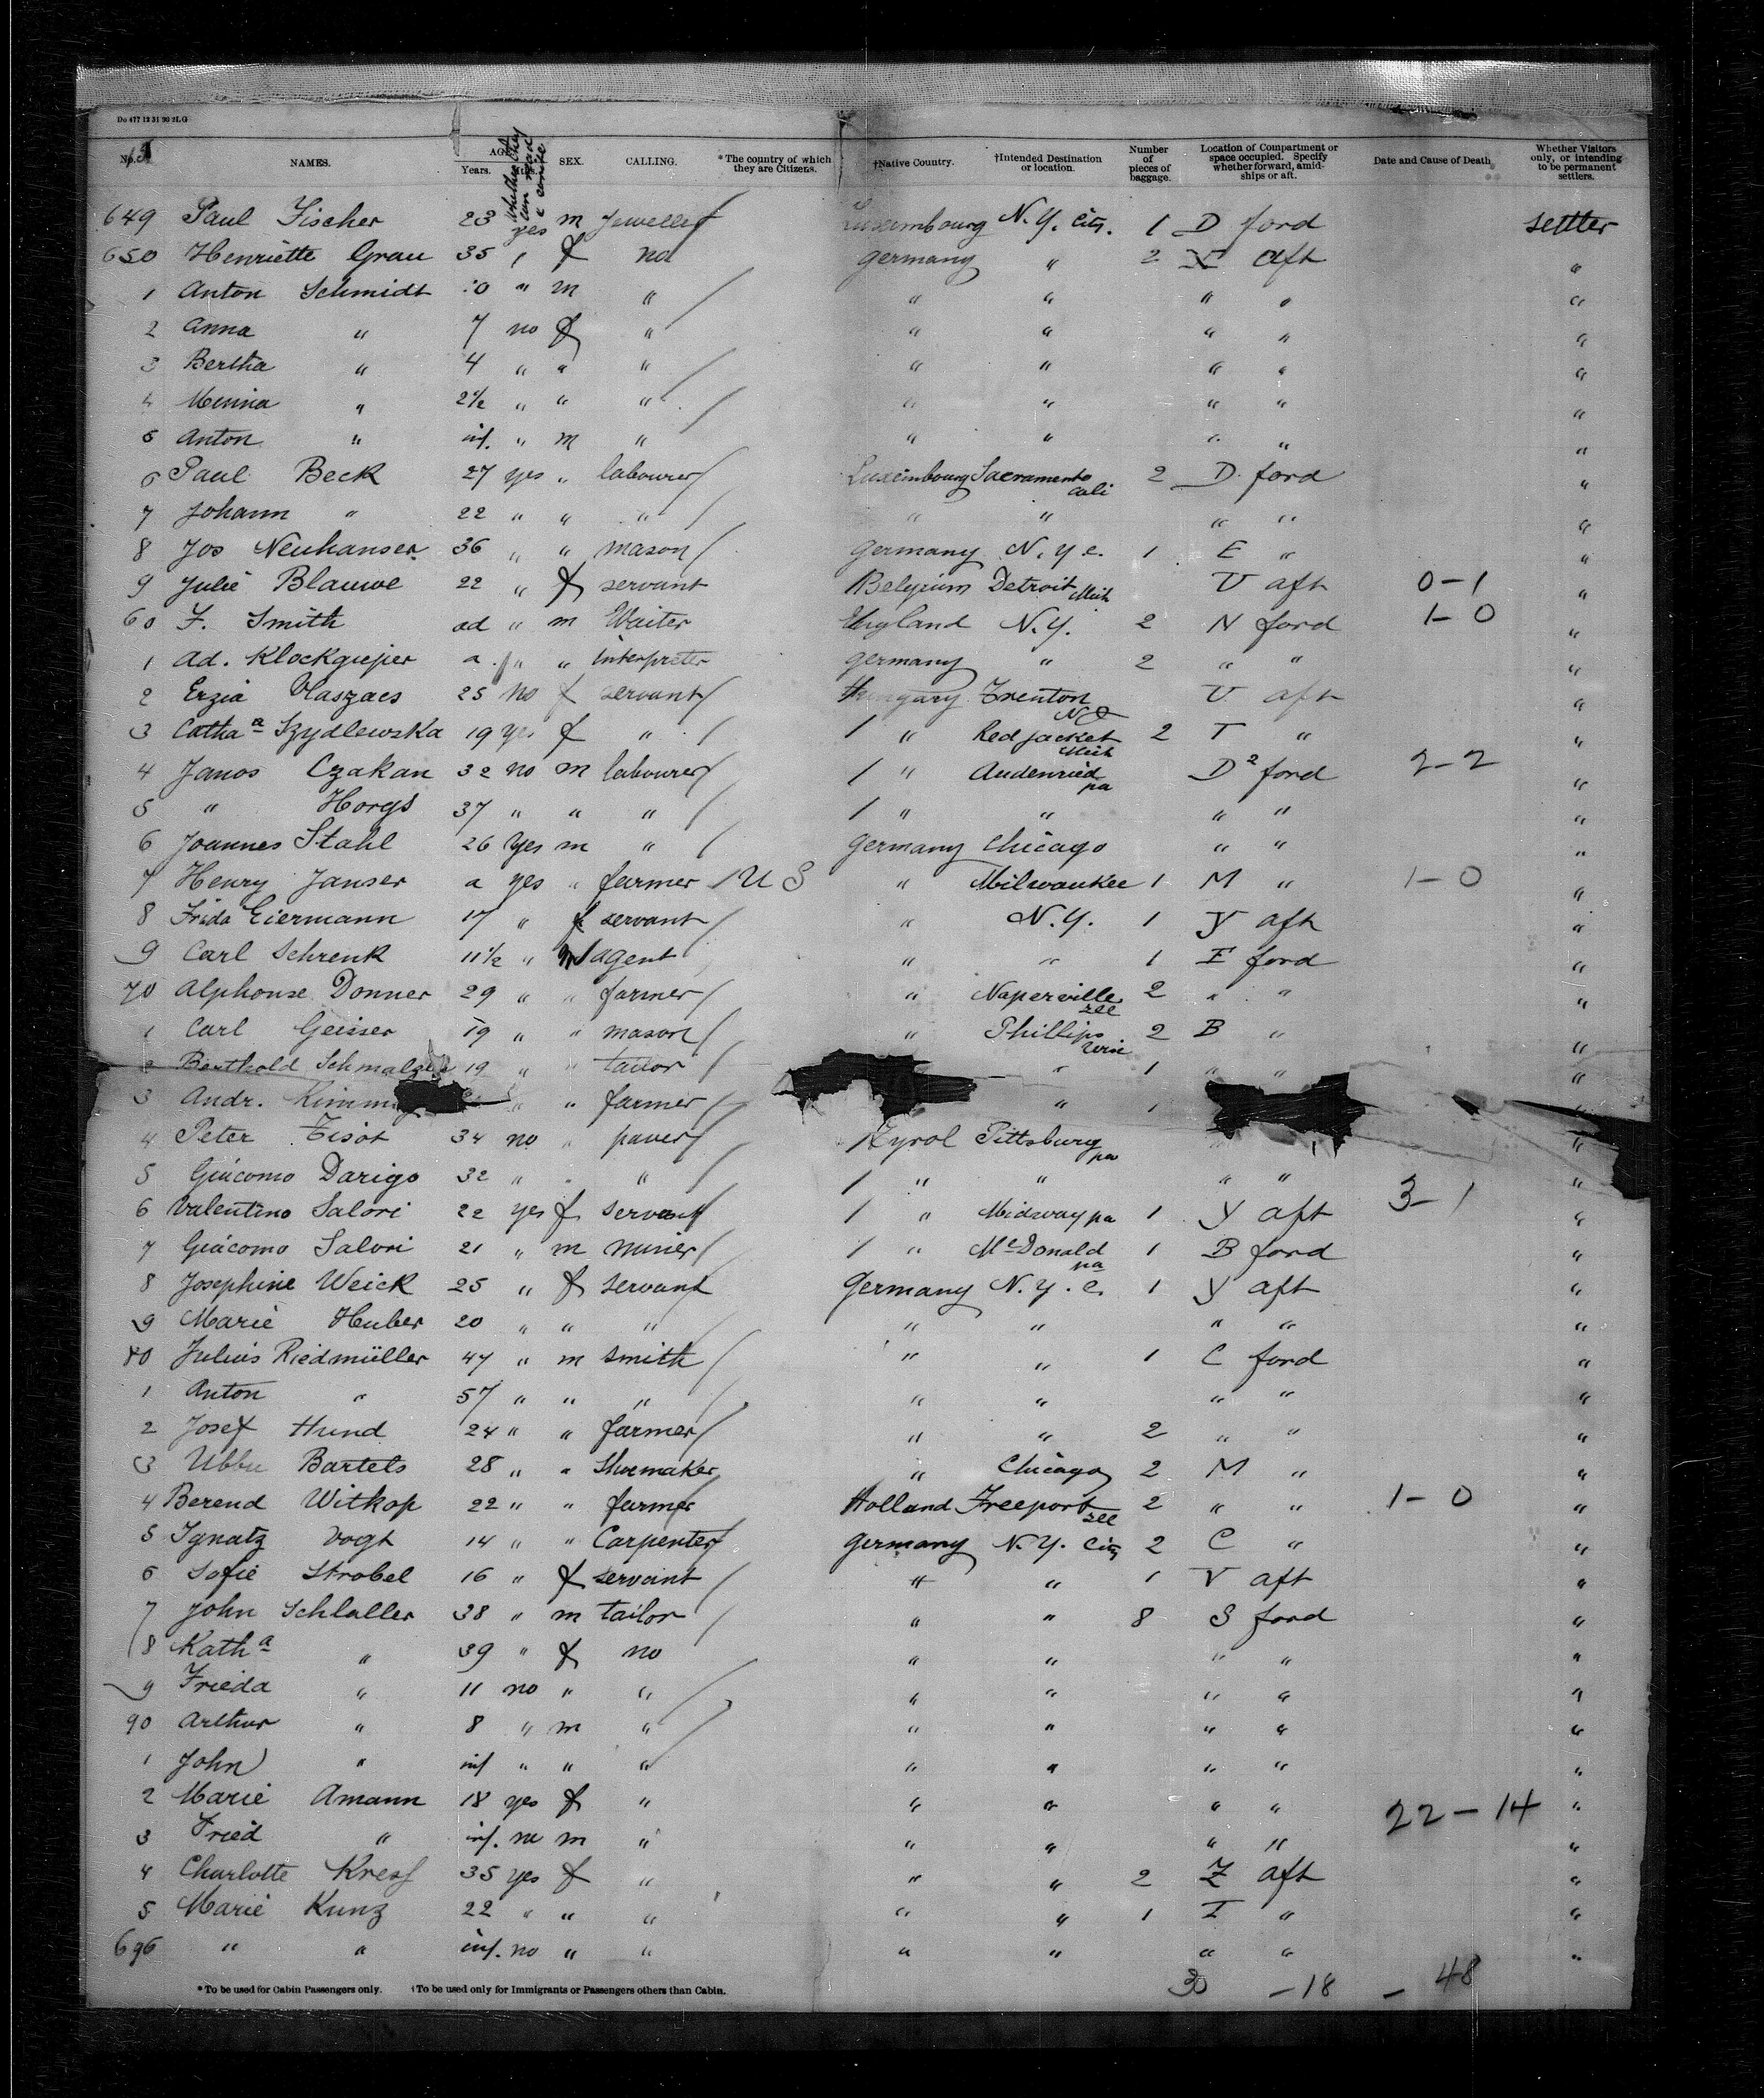 Do 477 12 31 90 2LG
No. NAMES. AGE. Years. Mths. whether they can read & write SEX. CALLING. *The country of which they are Citizens. †Native Country. †Intended Destination or location. Number of pieces of baggage. Location of Compartment or space occupied. Specify whether forward, amidships or aft. Date and Cause of Death Whether Visitors only, or intending to be permanent settlers.
649 Paul Fischer 23 yes m Jeweller / Luxembourg N.Y. City. 1 D ford settler
650 Henriette Grau 35 " f no Germany " 2 aft "
1 Anton Schmidt " m " / " " " " "
2 Anna " 7 no f " " " " " "
3 Bertha " 4 " " " / " " " " "
4 Minna " 2½ " " " / " " " " "
5 Anton " inf. " m " " " " " "
6 Paul Beck 27 yes " labourer / Luxembourg Sacramento Cali 2 D. ford "
7 Johann " 22 " " " / " " " " "
8 Jos Neuhauser 36 " " mason / Germany N. Y c. 1 E " "
9 Julie Blauwe 22 " f servant Belgium Detroit Mich V aft 0-1 "
60 F. Smith ad " m Waiter England N.Y. 2 N ford 1-0 "
1 Ad. Klockgiejier a " " Interpreter Germany " 2 " " "
2 Erzia Vlaszacs 25 no f servant / Hungary Trenton V aft "
3 Catha Szydlewska 19 yes f " / / " Red Jacket Mich 2 T " "
4 Janos Czakan 32 no m labourer / / " Audenried pa D2 ford 2-2 "
5 " Horgs 37 " " " / / " " " " "
6 Joannes Stahl 26 Yes m " / Germany Chicago " " "
7 Henry Janser a yes " farmer / U S " Milwaukee 1 M " 1-0 "
8 Frida Eiermann 17 " f servant / " N.Y. 1 Y aft "
9 Carl Schrenk 11½ " m agent " " 1 E ford "
70 Alphonse Donner 29 " " farmer / " Naperville Ill 2 " " "
1 Carl Geisser 19 " " mason / " Phillips Wis 2 B " "
2 Berthold 19 " " tailor / " 1 " " "
3 Andr. " " farmer / " "
4 Peter Tisot 34 no " paver / / Tyrol Pittsburg pa " "
5 Giacomo Darigo 32 " " " / / " " " " "
6 Valentino Salori 22 yes f servant / " Midway pa 1 Y aft 3-1 "
7 Giacomo Salori 21 " m miner / / " McDonald pa 1 B ford "
8 Josephine Weick 25 " f servant Germany N. Y. C. 1 Y aft "
9 Marie Huber 20 " " " / " " " " "
80 Julius Riedmüller 47 " m smith / " " 1 C ford "
1 Anton " 57 " " " / " " " " "
2 Josef Hund 24 " " farmer / " " 2 " " "
3 Ubbe Bartels 28 " " Shoemaker " Chicago 2 M " "
4 Berend Witkop 22 " " farmer Holland Freeport Ill 2 " " 1-0 "
5 Ignatz Vogt 14 " " Carpenter / Germany N.Y. City 2 C " "
6 Sofie Strobel 16 " f servant / " " 1 V aft "
7 John Schlaller 38 " m tailor / " " 8 S ford "
8 Katha " 39 " f no " " " " "
9 Frieda " 11 no " " / " " " " "
90 Arthur " 8 " m " / " " " " "
1 John " inf " " " " " " " "
2 Marie Amann 18 yes f " " " " " 22-14 "
3 Fried " inf. no m " " " " " "
4 Charlotte Kress 35 yes f " " " 2 Z aft "
5 Marie Kunz 22 " " " " " 1 I " "
696 " " inf. no " " " " " " "
30 -18 - 48
*To be used for Cabin Passengers only. †To be used only for Immigrants or Passengers others than Cabin.